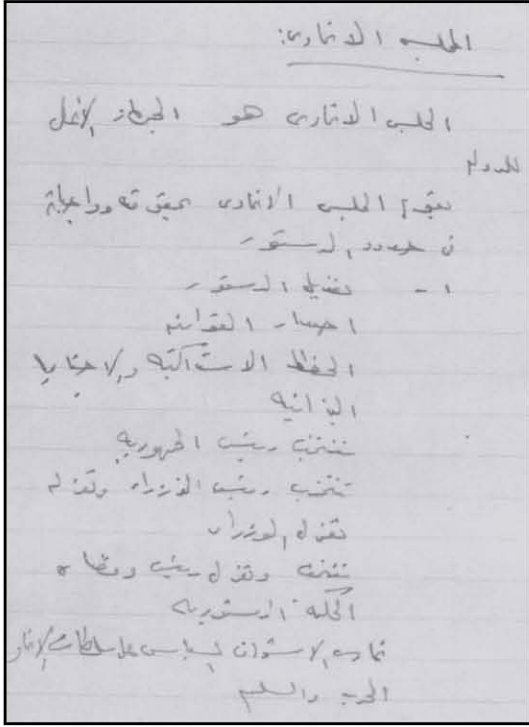 المجلس الاتحادي:
المجلس الاتحادي هو الجهاز الأعلى
للدولة
يقوم المجلس الاتحادي بحقوقه وواجباته
في حدود الدستور
١ - تعديل الدستور
اصدار القوانين
الخطط الاشتراكية والاحتياجات
الميزانية
تنتخب رئيس الجمهورية
تنتخب رئيس الوزراء وتعزله
تعزل الوزراء
تنتخب وتعزل رئيس وقضاة
المحكمة الدستورية
تمارس الاستجواب السياسي على سلطات الاتحاد
الحرب والسلم